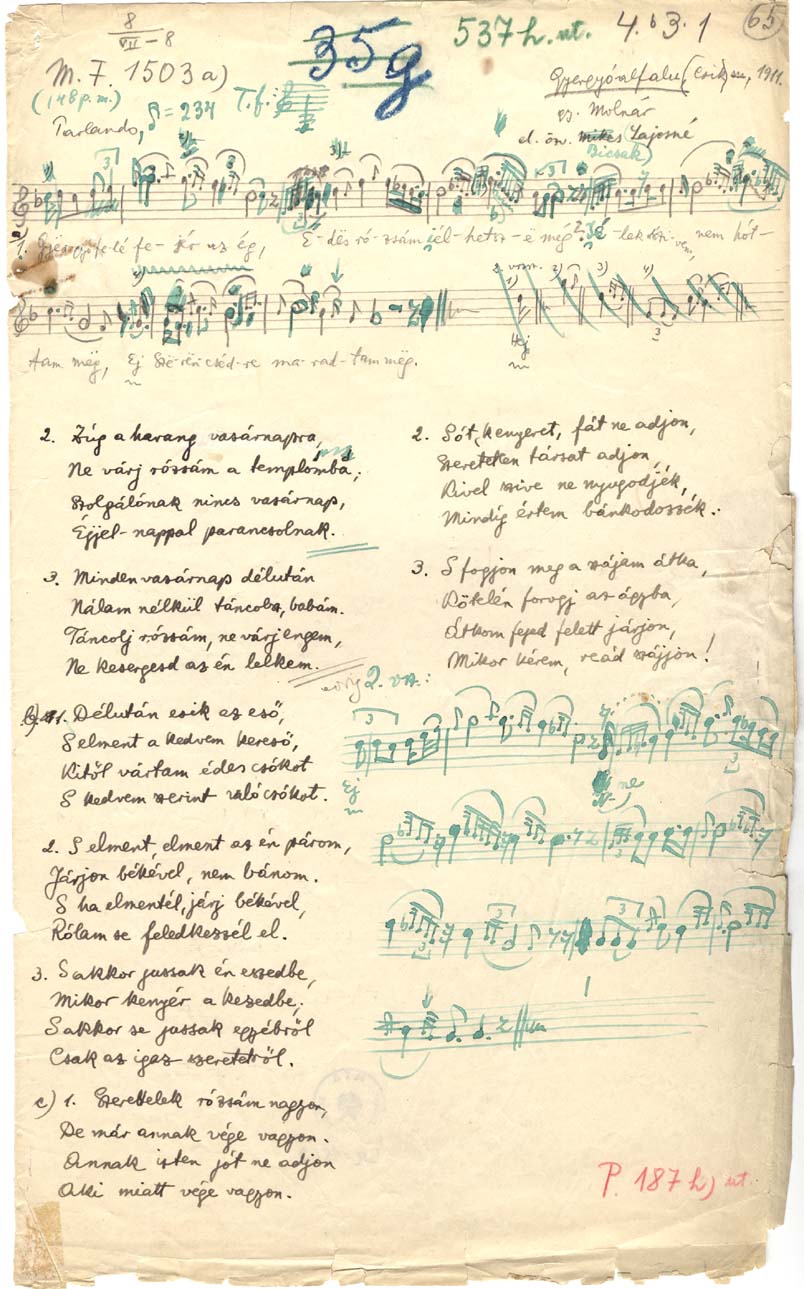 8
VII - 8
35g
537 h. ut.
4. b3. 1
65
M. F. 1503 a)
Gyergyóalfalu (Csík) 1911.
(148 p. m.)
♪ = 234
T. f.:
Parlando,
Molnár
Lajosné
Bicsak)
1. fe-jér az ég,
É-dës ró-zsám
nem hót-
2. vssz.
Hej
tam mëg, Ej Szë-rën-cséd-re ma-rad-tam mëg.
2. Zúg a harang vasárnapra,
Ne várj rózsám a templomba;
Szolgálónak nincs vasárnap,
Éjjel-nappal parancsolnak.
3. Minden vasárnap délután
Nálam nélkül táncolsz, babám.
Táncolj rózsám, ne várj engem,
Ne kesergesd az én lelkem.
b) 1. Délután esik az eső,
S elment a kedvem kereső,
Kitől vártam édes csókot
S kedvem szerint való csókot.
2. S elment, elment az én párom,
Járjon békével, nem bánom.
S ha elmentél, járj békével,
Rólam se feledkezzél el.
3. S akkor jussak én eszedbe,
Mikor kenyér a kezedbe;
S akkor se jussak egyébről
Csak az igaz szeretetről.
c) 1. Szerettelek rózsám nagyon,
De már annak vége vagyon.
Annak isten jót ne adjon
Aki miatt vége vagyon.
2. Sót, kenyeret, fát ne adjon,
Szeretetlen társat adjon,
Kivel szive ne nyugodjék,
Mindig értem bánkodossék.
3. S fogjon meg a szájam átka,
Kötelén forogj az ágyba,
Átkom fejed felett járjon,
Mikor kérem, reád szájjon!
2. vsz.:
Ej
ne
P. 187 h) ut.